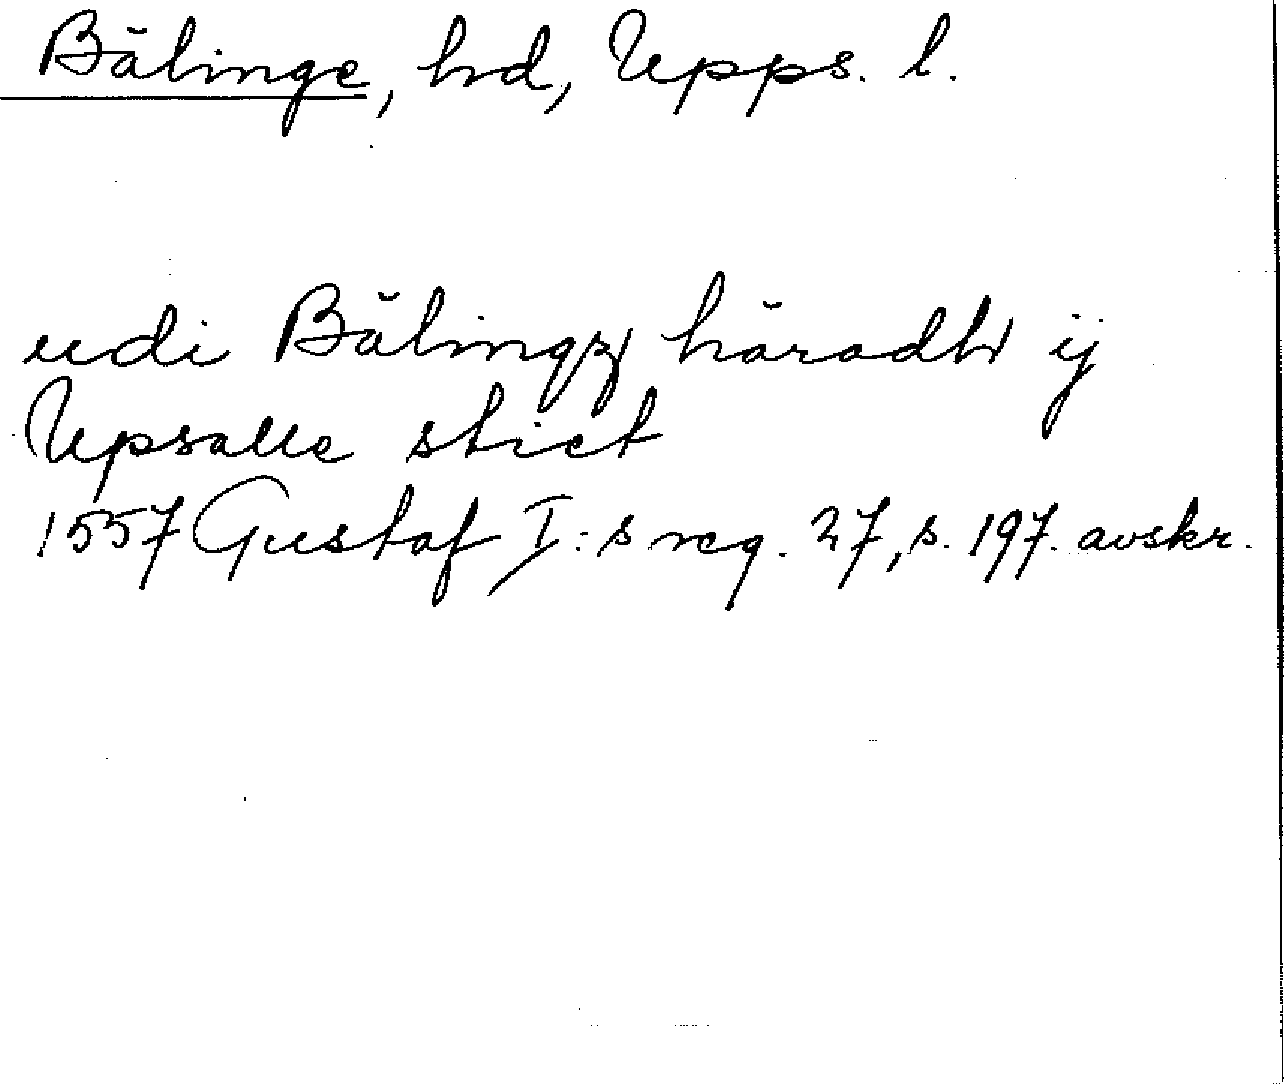 Bälinge, hd, Upps. l.
udi Bälingz häradh ij
Upsalle stict
1557 Gustaf I:s reg. 27, s. 197. avskr.